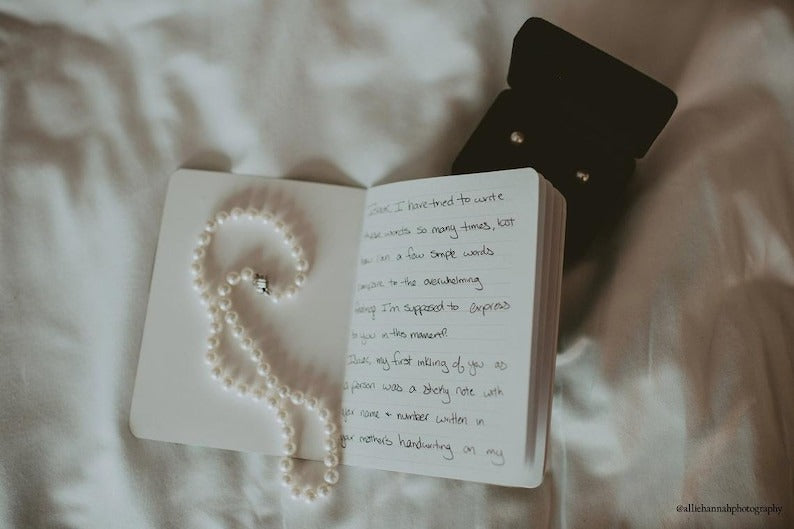 Isaac, I have tried to write
these words so many times, but
how can a few simple words
compare to the overwhelming
feeling I'm supposed to express
to you in this moment?
Isaac, my first inkling of you as
a person was a sticky note with
your name + number written in
your mother's handwriting on my
@alliehannahphotography